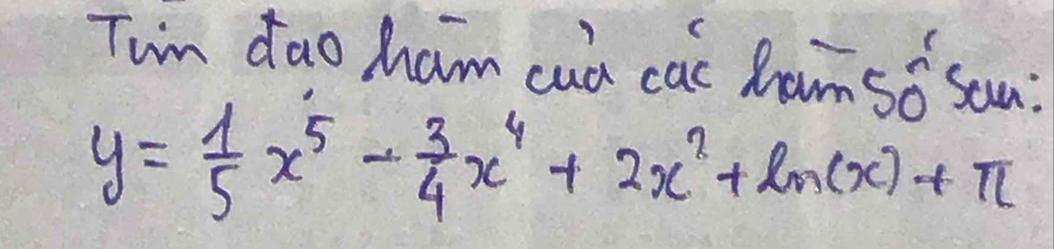 Tìm đạo hàm của các hàm số sau:
y = \frac{1}{5}x^5 - \frac{3}{4}x^4 + 2x^2 + ln(x) + π